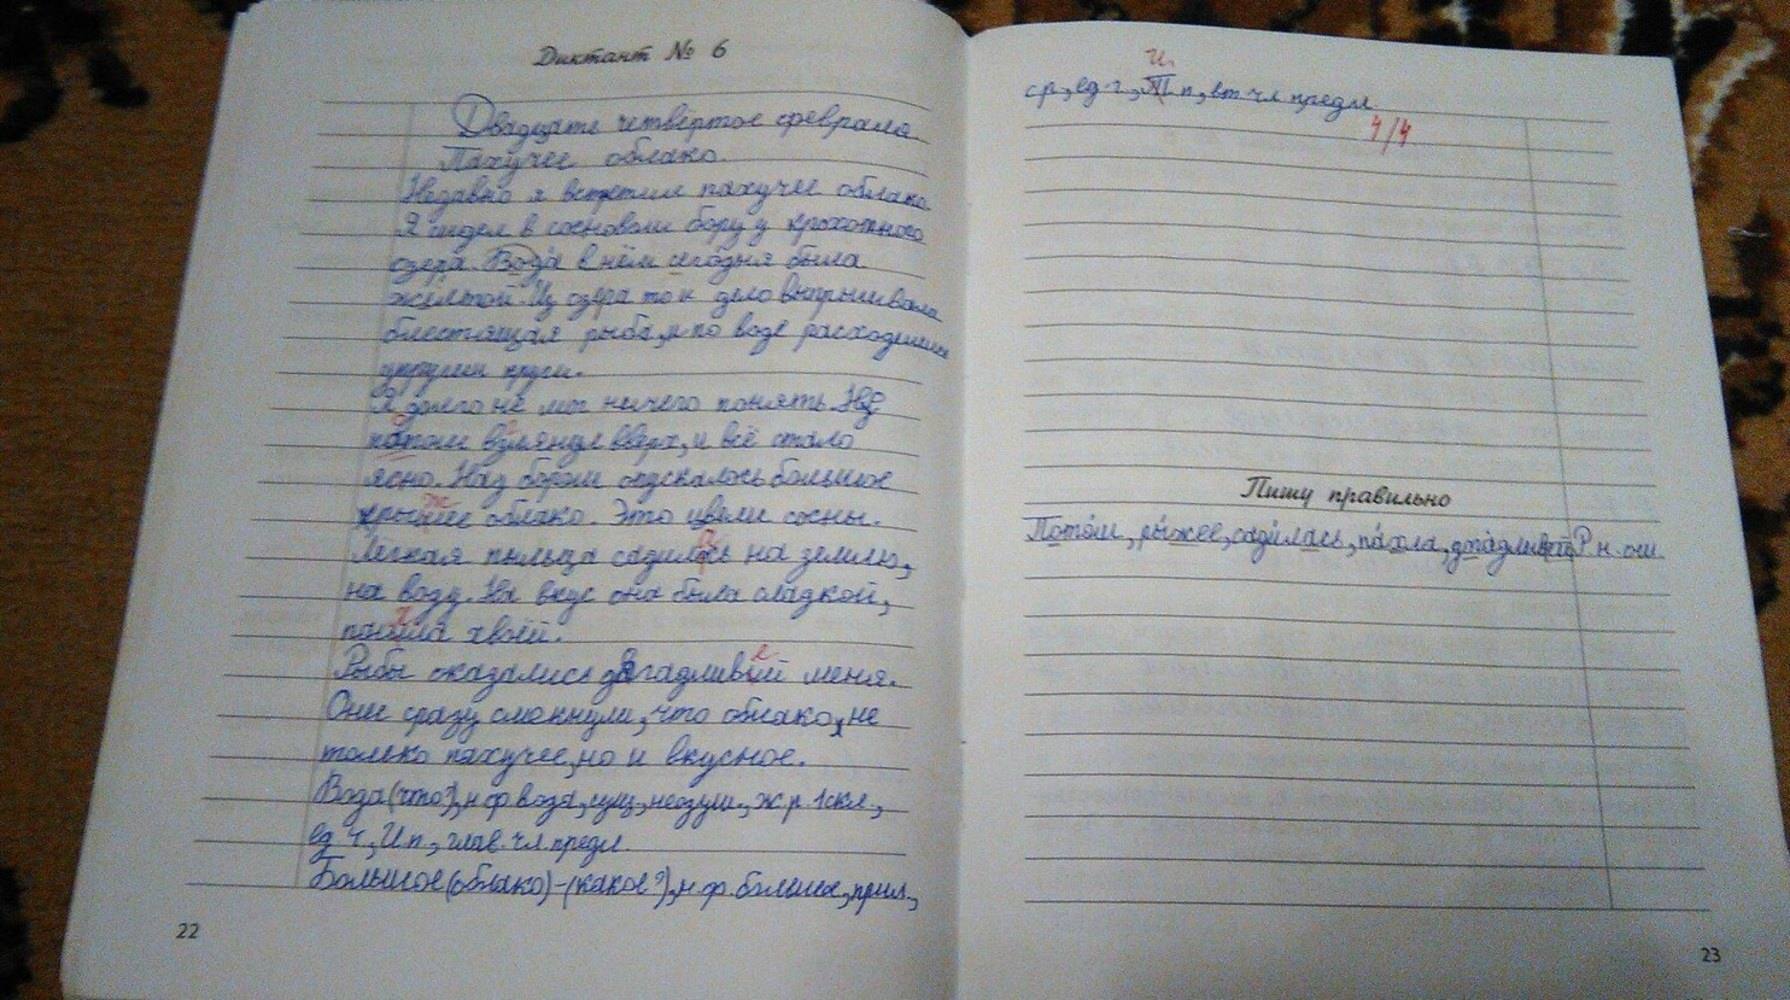 Диктант № 6
Двадцать четвёртое февраля.
Пахучее облако.
Недавно я встретил пахучее облако.
Я сидел в сосновом бору у крохотного
озера. Вода в нём сегодня была
жёлтой. Из озера то и дело выпрыгивала
блестящая рыба, и по воде расходились
упругие круги.
Я долго не мог ничего понять. Но
потом взглянул вверх, и всё стало
ясно. Над бором опускалось большое
облако. Это цвели сосны.
Лёгкая пыльца садилась на землю,
на воду. На вкус она была сладкой,
хвоей.
Рыбы оказались меня.
Они сразу смекнули, что облако, не
только пахучее, но и вкусное.
Вода (что?), н.ф. вода, сущ., неодуш., ж.р. 1 скл.,
ед.ч., И.п., глав. чл. предл.
Большое (облако) - (какое?), н.ф. большой, прил.,
22
ср., ед.ч., п., вт. чл. предл.
И.
4/4
Пишу правильно
Потом, рыжее, садилась, пахла, Р.н. ош.
23